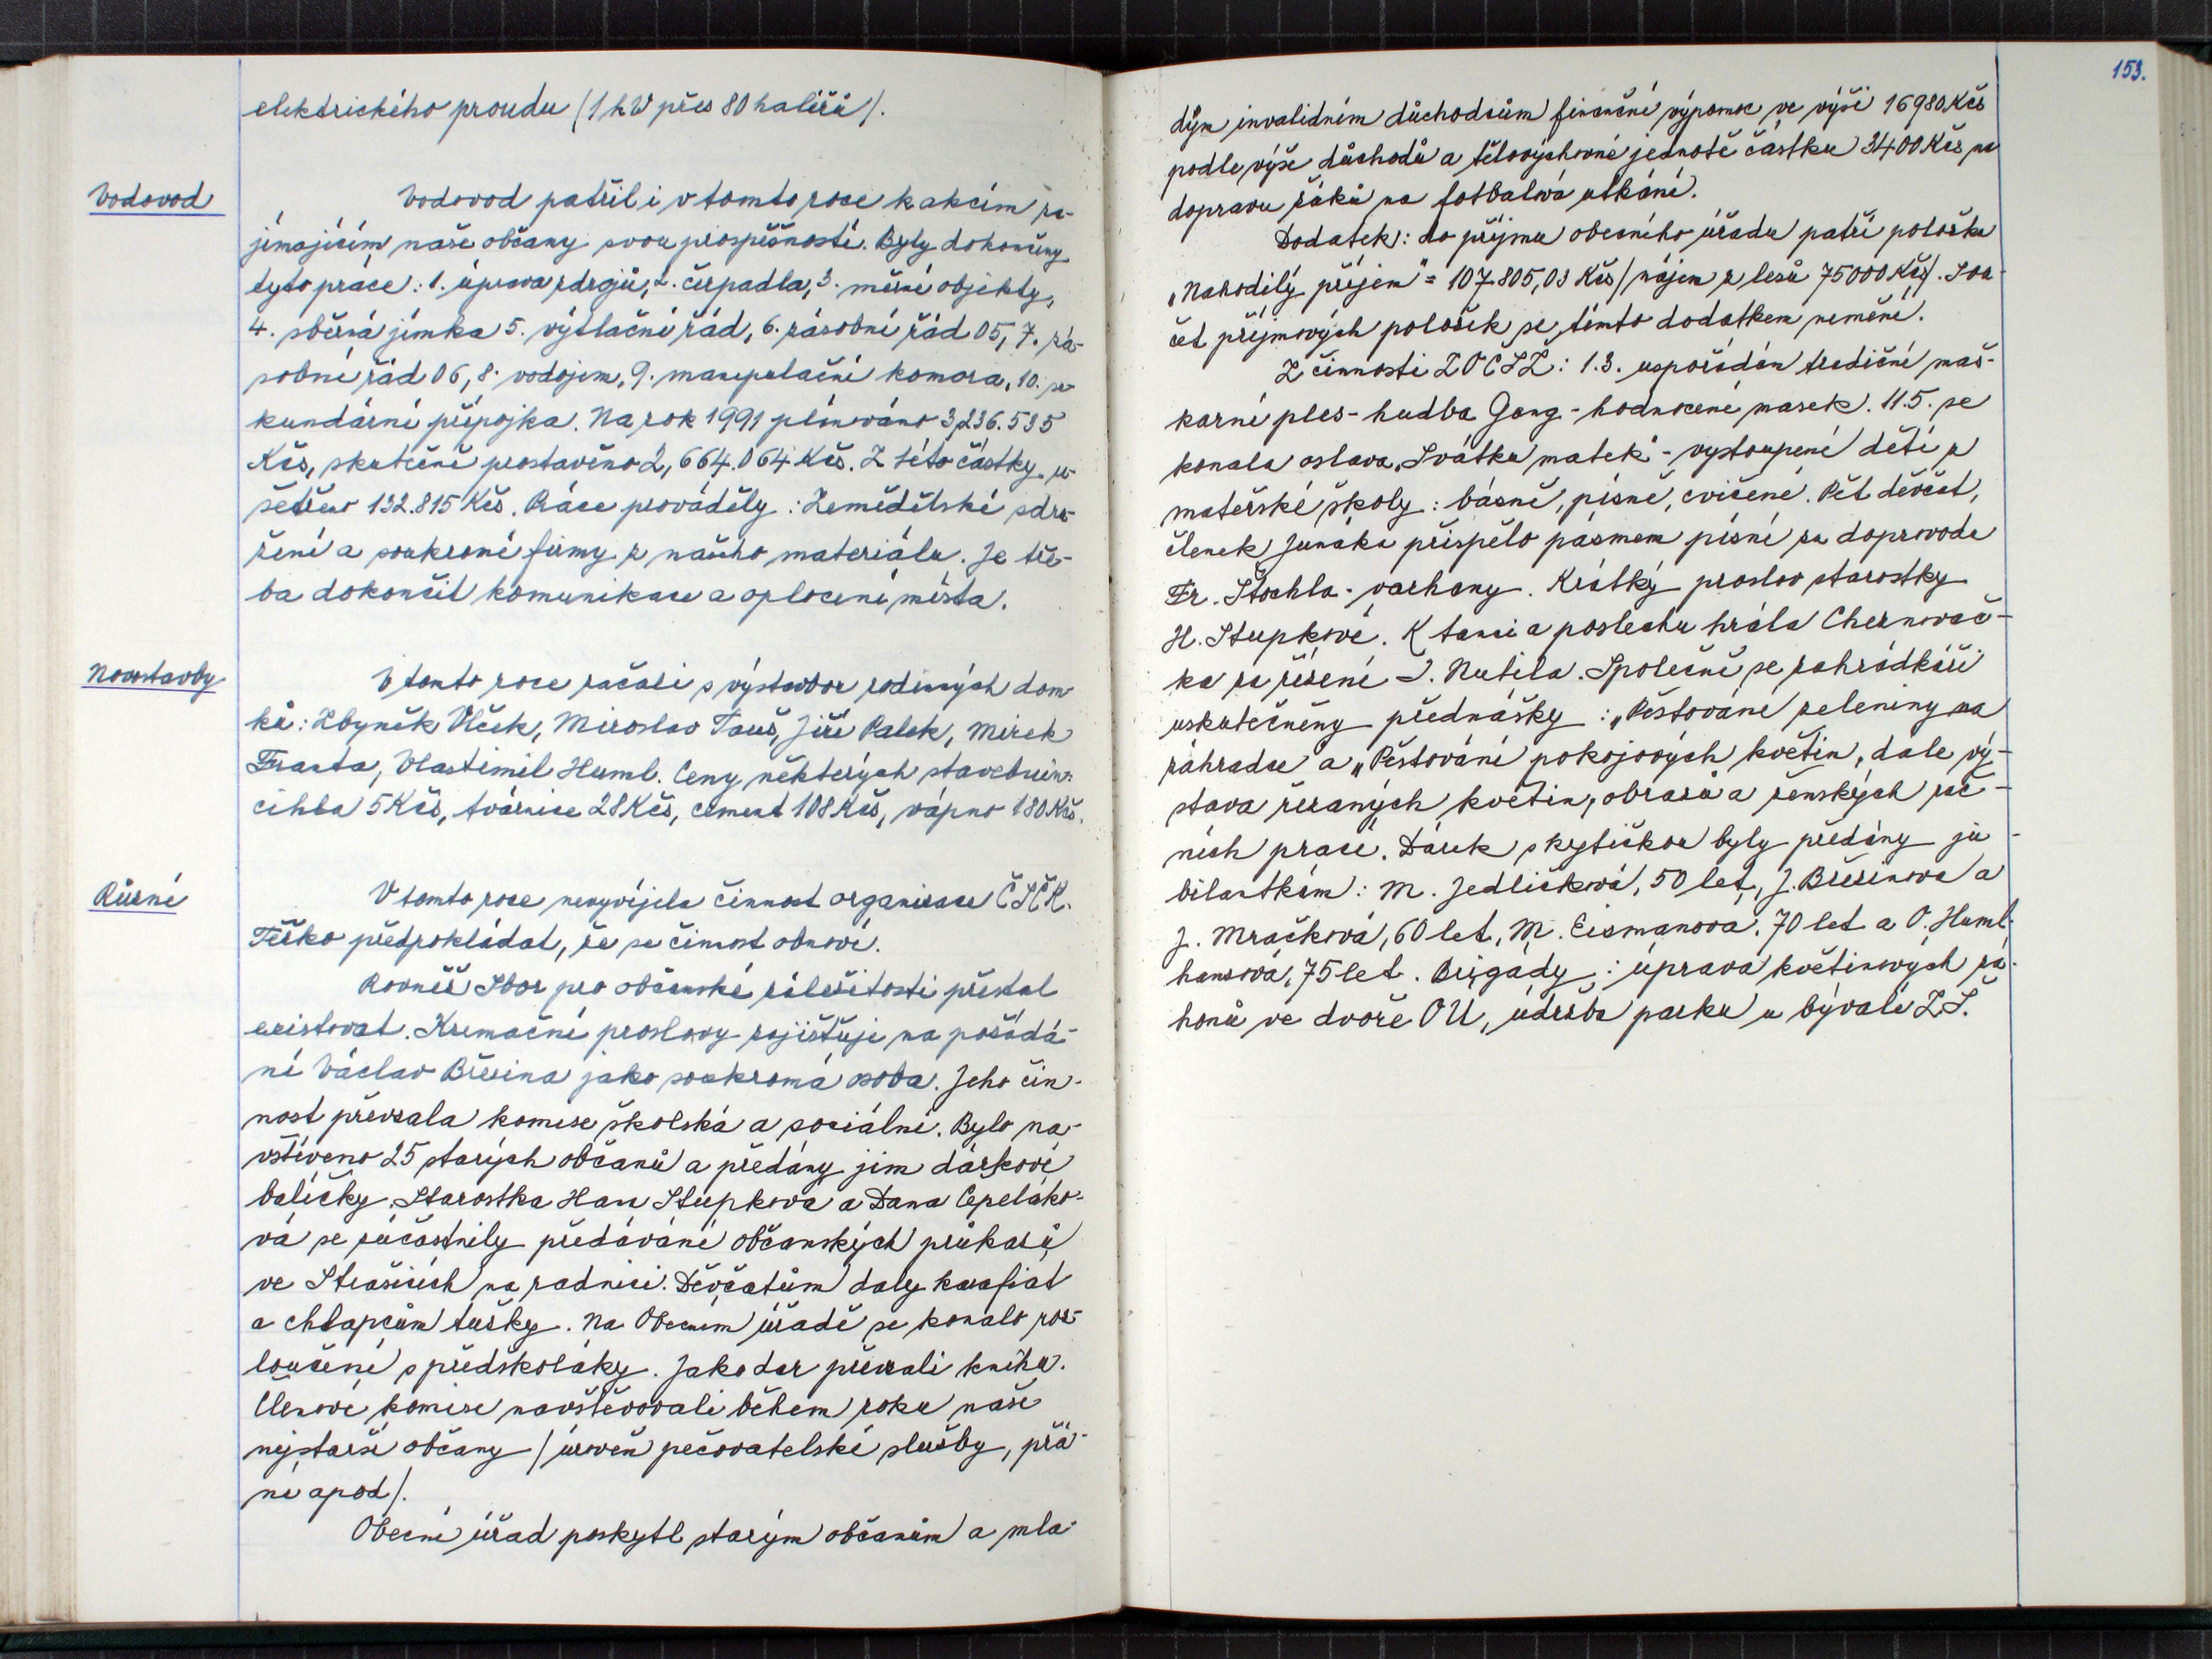 elektrického proudu (1 kW přes 80 haléřů).
Vodovod
Vodovod patřil i v tomto roce k akcím za-
jímajícím naše občany svou prospěšností. Byly dokončeny
tyto práce: 1. úprava zdrojů, 2. čerpadla, 3. měrné objekty,
4. sběrná jímka 5. výtlační řád, 6. zásobní řád 05, 7. zá-
sobní řád 06, 8. vodojem, 9. manipulační komora, 10. se-
kundární přípojka. Na rok 1991 plánováno 3,236.535
Kčs, skutečně prostavěno 2,664.064 Kčs. Z této částky u-
šetřeno 132.815 Kčs. Práce prováděly: Zemědělské sdru-
žení a soukromé firmy z našeho materiálu. Je tře-
ba dokončit komunikace a oplocení místa.
Novostavby
V tomto roce začali s výstavbou rodinných dom-
ků: Zbyněk Vlček, Miroslav Tauš, Jiří Palek, Mirek
Franta, Vlastimil Huml. Ceny některých stavebnin:
cihla 5 Kčs, tvárnice 28 Kčs, cement 108 Kčs, vápno 180 Kčs.
Různé
V tomto roce nevyvíjela činnost organizace ČSČK.
Těžko předpokládat, že se činnost obnoví.
Rovněž Sbor pro občanské záležitosti přestal
existovat. Kremační proslovy zajišťuje na požádá-
ní Václav Březina jako soukromá osoba. Jeho čin-
nost převzala komise školská a sociální. Bylo na-
vštíveno 25 starých občanů a předány jim dárkové
balíčky. Starostka Hana Stupková a Dana Cepeláko-
vá se zúčastnily předávání občanských průkazů
ve Strašicích na radnici. Děvčatům daly karafiát
a chlapcům tužky. Na Obecním úřadě se konalo roz-
loučení s předškoláky. Jako dar převzali knihu.
Členové komise navštěvovali během roku naše
nejstarší občany (úroveň pečovatelské služby, přá-
ní apod).
Obecní úřad poskytl starým občanům a mla-
153.
dým invalidním důchodcům finanční výpomoc ve výši 16980 Kčs
podle výše důchodů a tělovýchovné jednotě částku 3400 Kčs na
dopravu žáků na fotbalová utkání.
Dodatek: do příjmu obecního úřadu patří položka
„Nahodilý příjem" = 107.805,03 Kčs (nájem z lesů 75000 Kčs). Sou-
čet příjmových položek se tímto dodatkem nemění.
Z činnosti ZO ČSŽ: 1.3. uspořádán tradiční maš-
karní ples - hudba Gong - hodnocení masek. 11.5. se
konala oslava „Svátku matek" - vystoupení dětí z
mateřské školy: básně, písně, cvičení. Pět děvčat,
členek Junáka přispělo pásmem písní za doprovodu
Fr. Štochla - varhany. Krátký proslov starostky
H. Stupkové. K tanci a poslechu hrála Chernovač-
ka za řízení J. Nutila. Společně se zahrádkáři
uskutečněny přednášky: „Pěstování zeleniny na
záhradce a „Pěstování pokojových květin, dale vý-
stava řezaných květin, obrazů a ženských ruč-
ních prací. Dárek s kytičkou byly předány ju-
bilantkám: M. Jedličková, 50 let, J. Březinova a
J. Mračková, 60 let, M. Eismanova, 70 let a O. Huml-
hansová, 75 let. Brigády: úprava květinových zá-
honů ve dvoře OÚ, údržba parku u bývalé Z.Š.